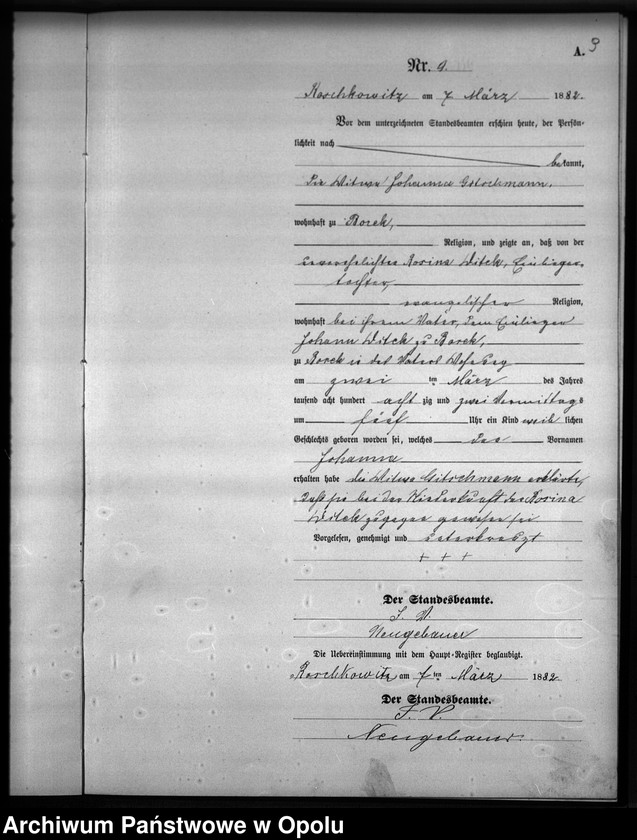 A. 9
Nr. 9.
Roschkowitz am 7 März 1882.
Vor dem unterzeichneten Standesbeamten erschien heute, der Persön-
lichkeit nach
bekannt,
die Witwe Johanna Gitschmann,
wohnhaft zu Borek,
Religion, und zeigte an, daß von der
unverehelichten Rosina Witek, Einlieger-
tochter,
evangelischer Religion,
wohnhaft bei ihrem Vater, dem Einlieger
Johann Witek zu Borek,
zu Borek in des Vaters Wohnung
am zwei ten März des Jahres
tausend acht hundert acht zig und zwei Vormittags
um fünf Uhr ein Kind weib lichen
Geschlechts geboren worden sei, welches den Vornamen
Johanna
erhalten habe die Witwe Gitschmann erklärte,
daß sie bei der Niederkunft der Rosina
Witek zugegen gewesen sei
Vorgelesen, genehmigt und unterkreuzt
+ + +
Der Standesbeamte.
I. V.
Neugebauer
Die Uebereinstimmung mit dem Haupt-Register beglaubigt.
Roschkowitz am 7 ten März 1882
Der Standesbeamte.
I. V.
Neugebauer.
Archiwum Państwowe w Opolu